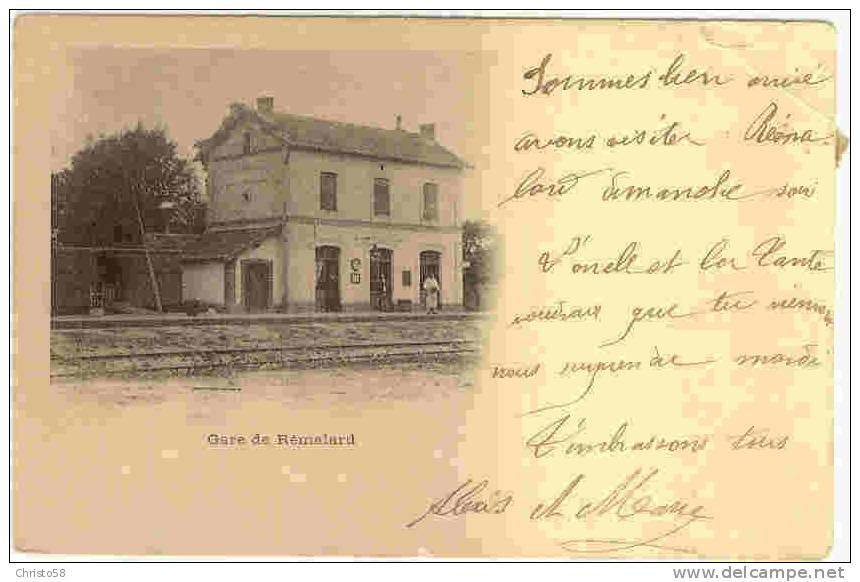 Sommes bien arrivé
avons visiter Réma-
lard dimanche soir
L'oncle et la Tante
voudrais que tu viennes
nous reprendre mardi
T'embrassons tous
Alexis et Marie
Gare de Rémalard
Christo58
http://www.delcampe.net